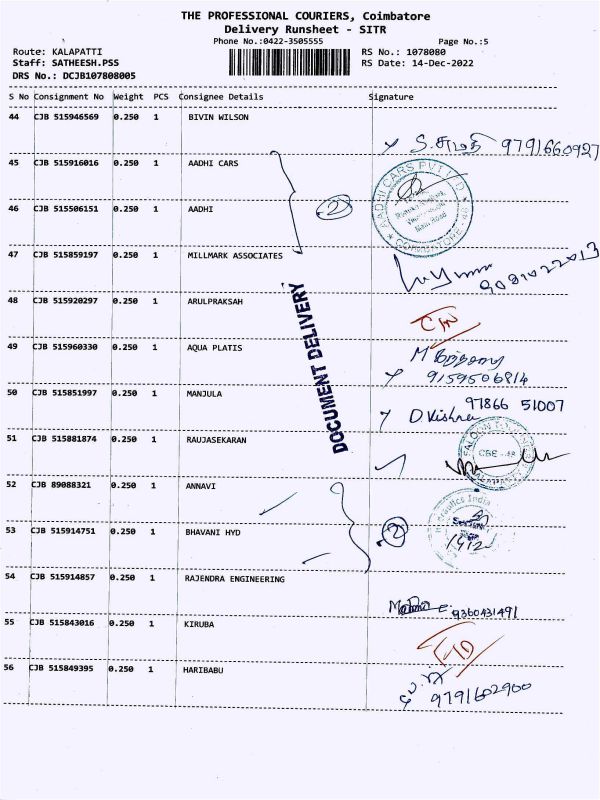 THE PROFESSIONAL COURIERS, Coimbatore
Delivery Runsheet - SITR
Phone No.:0422-3505555 Page No.:5
Route: KALAPATTI RS No.: 1078080
Staff: SATHEESH.PSS RS Date: 14-Dec-2022
DRS No.: DCJB107808005
S No Consignment No Weight PCS Consignee Details Signature
44 CJB 515946569 0.250 1 BIVIN WILSON
S.சுமதி 9791660927
45 CJB 515916016 0.250 1 AADHI CARS
AADHI CARS PVT LTD
COIMBATORE - 48
Main Road
46 CJB 515506151 0.250 1 AADHI
2
47 CJB 515859197 0.250 1 MILLMARK ASSOCIATES
48 CJB 515920297 0.250 1 ARULPRAKSAH
DOCUMENT DELIVERY
49 CJB 515960330 0.250 1 AQUA PLATIS
9159506814
50 CJB 515851997 0.250 1 MANJULA
97866 51007
51 CJB 515881874 0.250 1 RAUJASEKARAN
CBE - 48
52 CJB 89088321 0.250 1 ANNAVI
53 CJB 515914751 0.250 1 BHAVANI HYD
2
54 CJB 515914857 0.250 1 RAJENDRA ENGINEERING
9360431491
55 CJB 515843016 0.250 1 KIRUBA
56 CJB 515849395 0.250 1 HARIBABU
9791602900